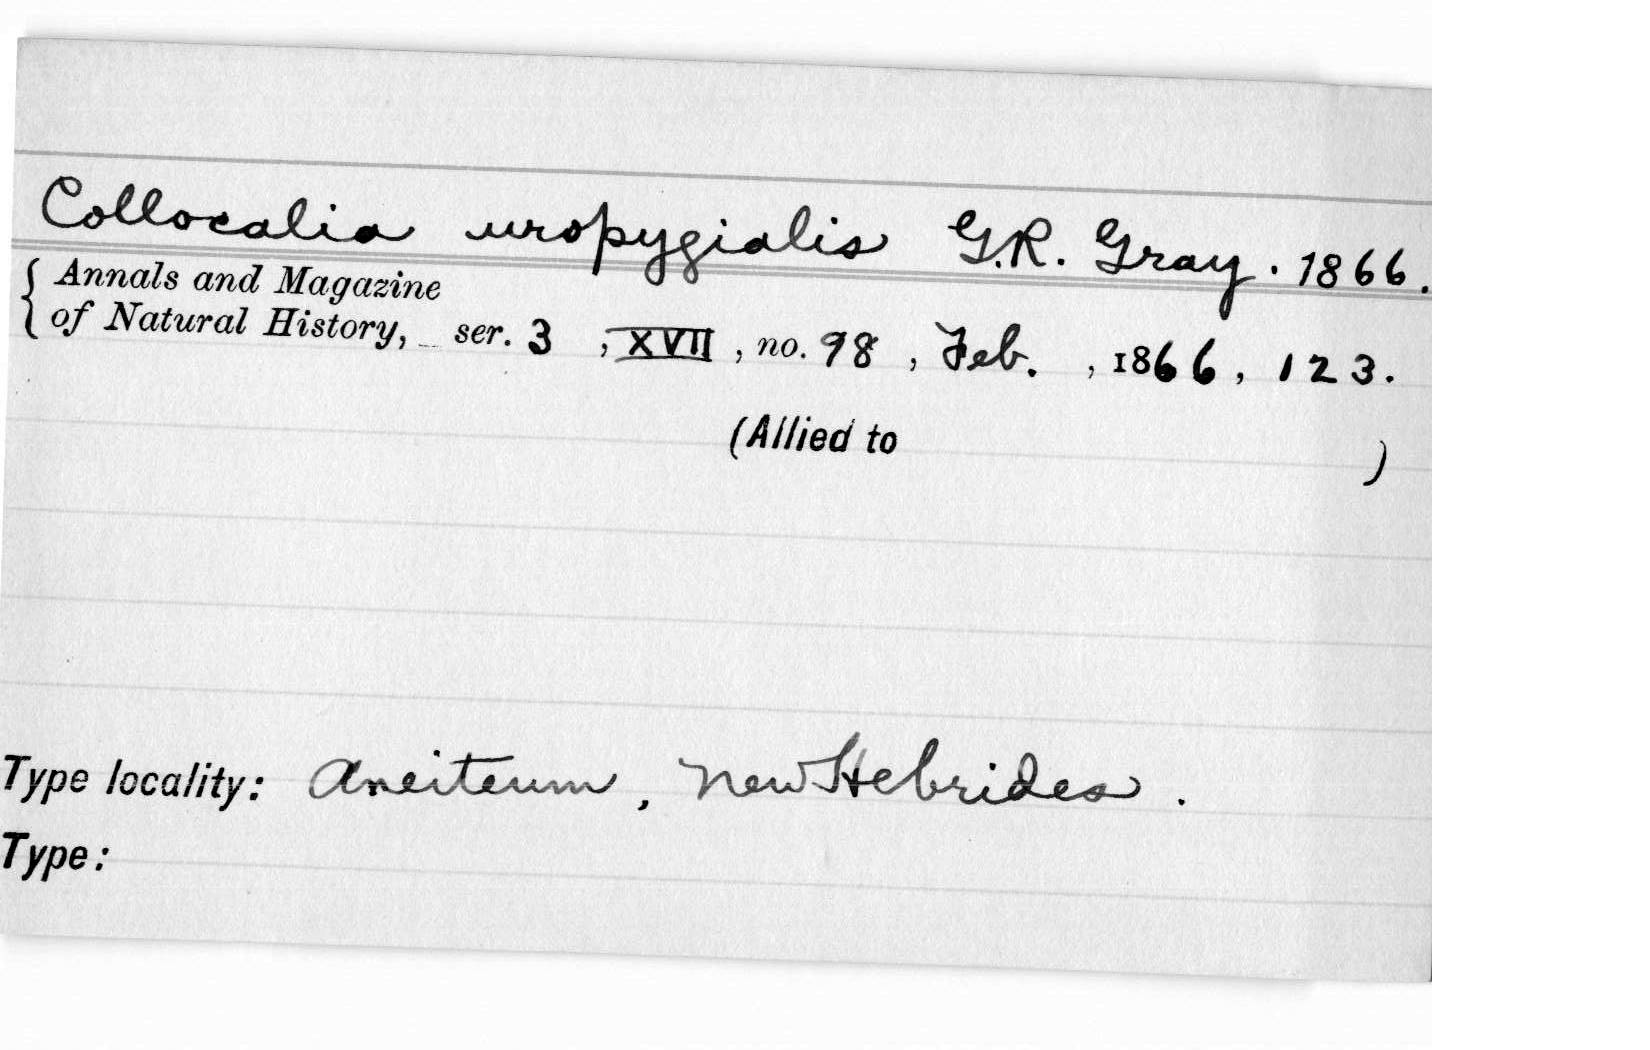 Collocalia uropygialis G.R. Gray. 1866.
Annals and Magazine
of Natural History, ser. 3, XVII, no. 98, Feb., 1866, 123.
(Allied to )
Type locality: Aneiteum, New Hebrides.
Type: